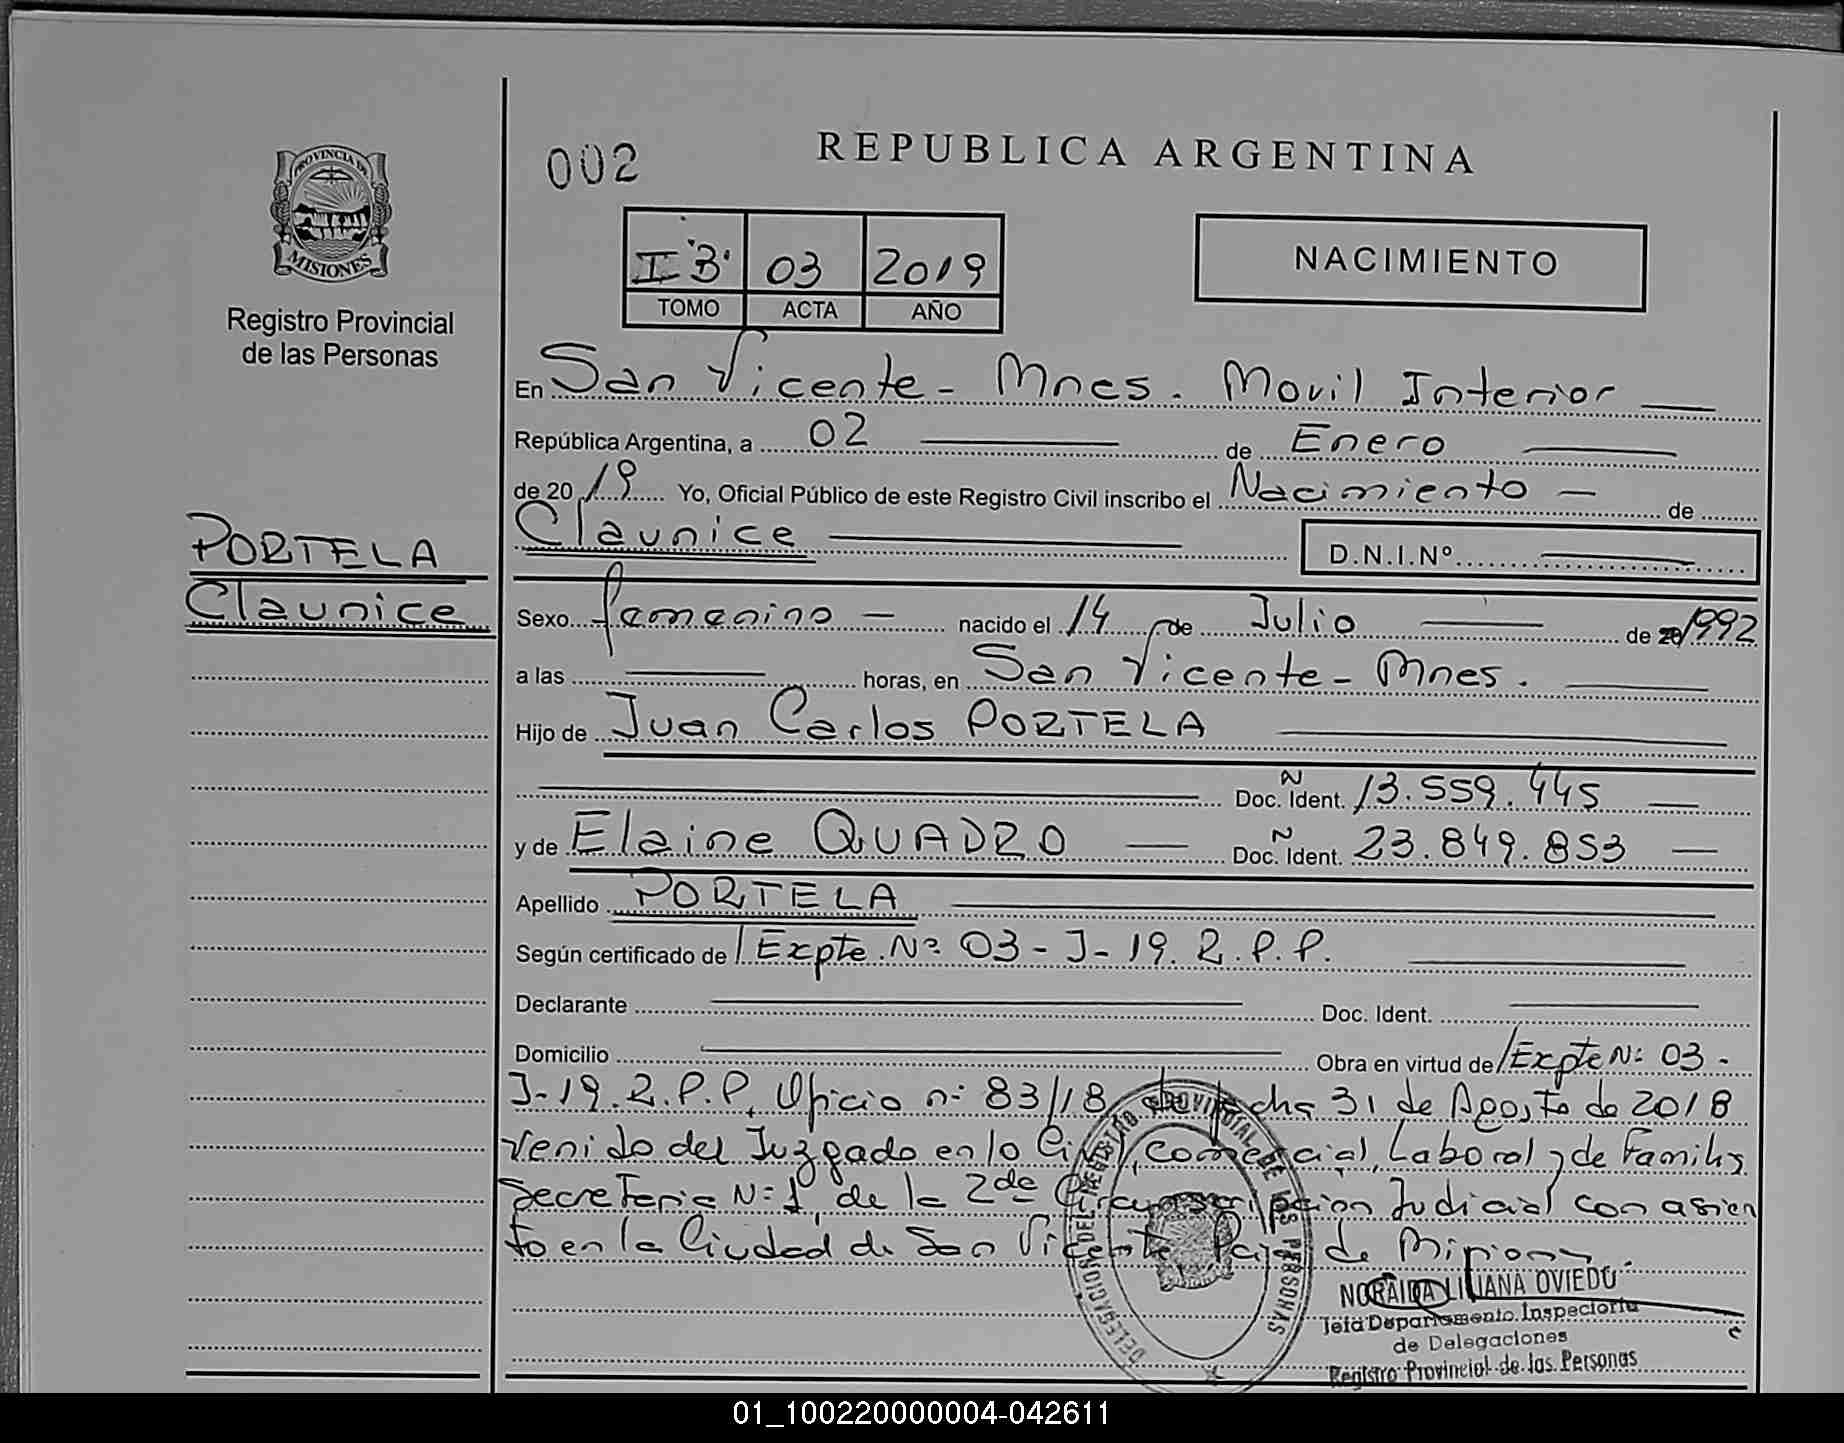 PROVINCIA DE
MISIONES
Registro Provincial
de las Personas
PORTELA
Claunice
002
REPUBLICA ARGENTINA
II "B" 03 2019
TOMO ACTA AÑO
NACIMIENTO
En San Vicente - Mnes. Movil Interior
República Argentina, a 02 de Enero
de 2019 Yo, Oficial Público de este Registro Civil inscribo el Nacimiento - de
Claunice D.N.I.Nº
Sexo femenino - nacido el 14 de Julio de 1992
a las horas, en San Vicente - Mnes.
Hijo de Juan Carlos PORTELA
Doc. Ident. Nº 13.559.445
y de Elaine QUADRO Doc. Ident. Nº 23.849.853
Apellido PORTELA
Según certificado de Expte. Nº 03-J-19. R.P.P.
Declarante Doc. Ident.
Domicilio Obra en virtud de Expte Nº 03-
J-19.R.P.P, Oficio nº 83/18 de fecha 31 de Agosto de 2018
venido del Juzgado en lo Civil, Comercial, Laboral y de Familia
Secretaria Nº 1, de la 2da Circunscripcion Judicial con asien
to en la Ciudad de San Vicente Pcia de Misiones.
DELEGACION DEL REGISTRO PROVINCIAL DE LAS PERSONAS
NORAIDA LILIANA OVIEDO
Jefa Departamento Inspectoria
de Delegaciones
Registro Provincial de las Personas
01_100220000004-042611